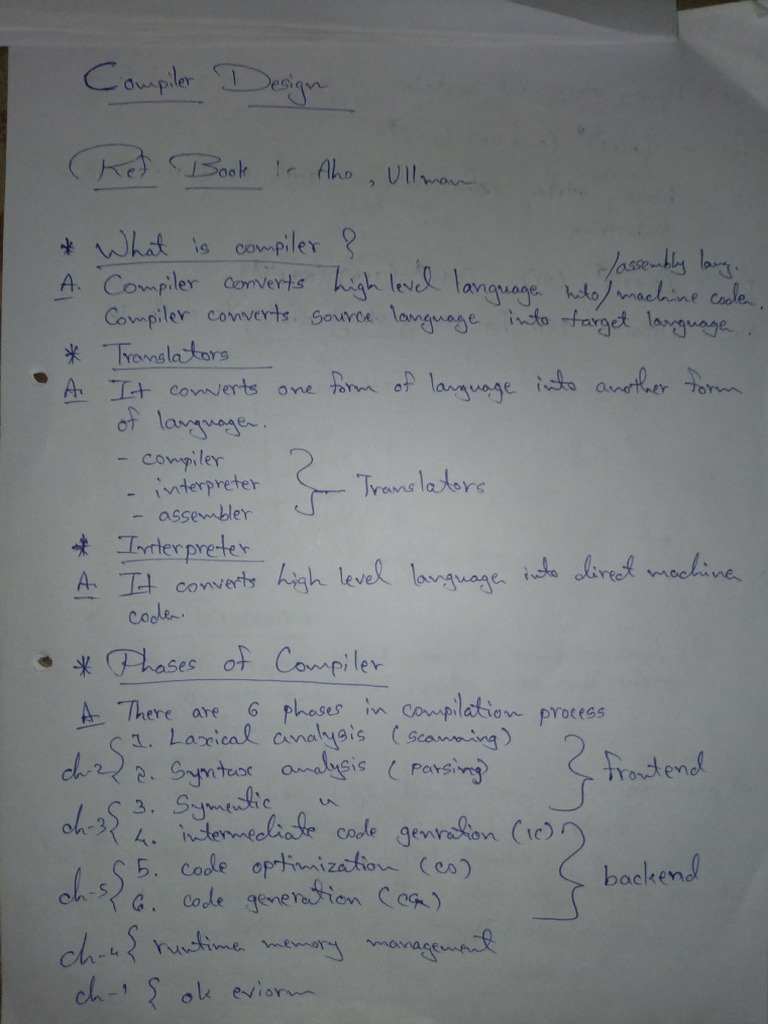 Compiler Design
Ref Book :- Aho, Ullman
* What is compiler ?
/assembly lang.
A. Compiler converts high level language into / machine code.
Compiler converts source language into target language.
* Translators
A. It converts one form of language into another form
of language.
- compiler
- interpreter } Translators
- assembler
* Interpreter
A. It converts high level language into direct machine
code.
* Phases of Compiler
A There are 6 phases in compilation process
ch-2 { 1. Laxical analysis (scanning)
2. Syntax analysis (parsing) } frontend
ch-3 { 3. Symentic "
4. intermediate code genration (ic)
ch-5 { 5. code optimization (co) } backend
6. code generation (cg)
ch-4 { runtime memory management
ch-1 { ok